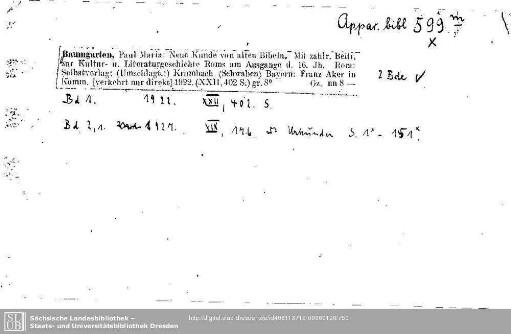 Appar. bibl 599 m
x
Baumgarten, Paul Maria: Neue Kunde von alten Bibeln. Mit zahlr. Beitr.
zur Kultur- u. Literaturgeschichte Roms am Ausgange d. 16. Jh. Rom:
Selbstverlag; (Umschlagt.:) Krumbach (Schwaben) Bayern: Franz Aker in
Komm. [verkehrt nur direkt] 1922. (XXII, 402 S.) gr. 8° Gz. nn 8 —
2 Bde ✓
Bd 1. 1922. XXII, 402 S.
Bd 2,1. 1927. XIX, 196 Urkunden S. 1* - 151*
SLUB
Sächsische Landesbibliothek –
Staats- und Universitätsbibliothek Dresden